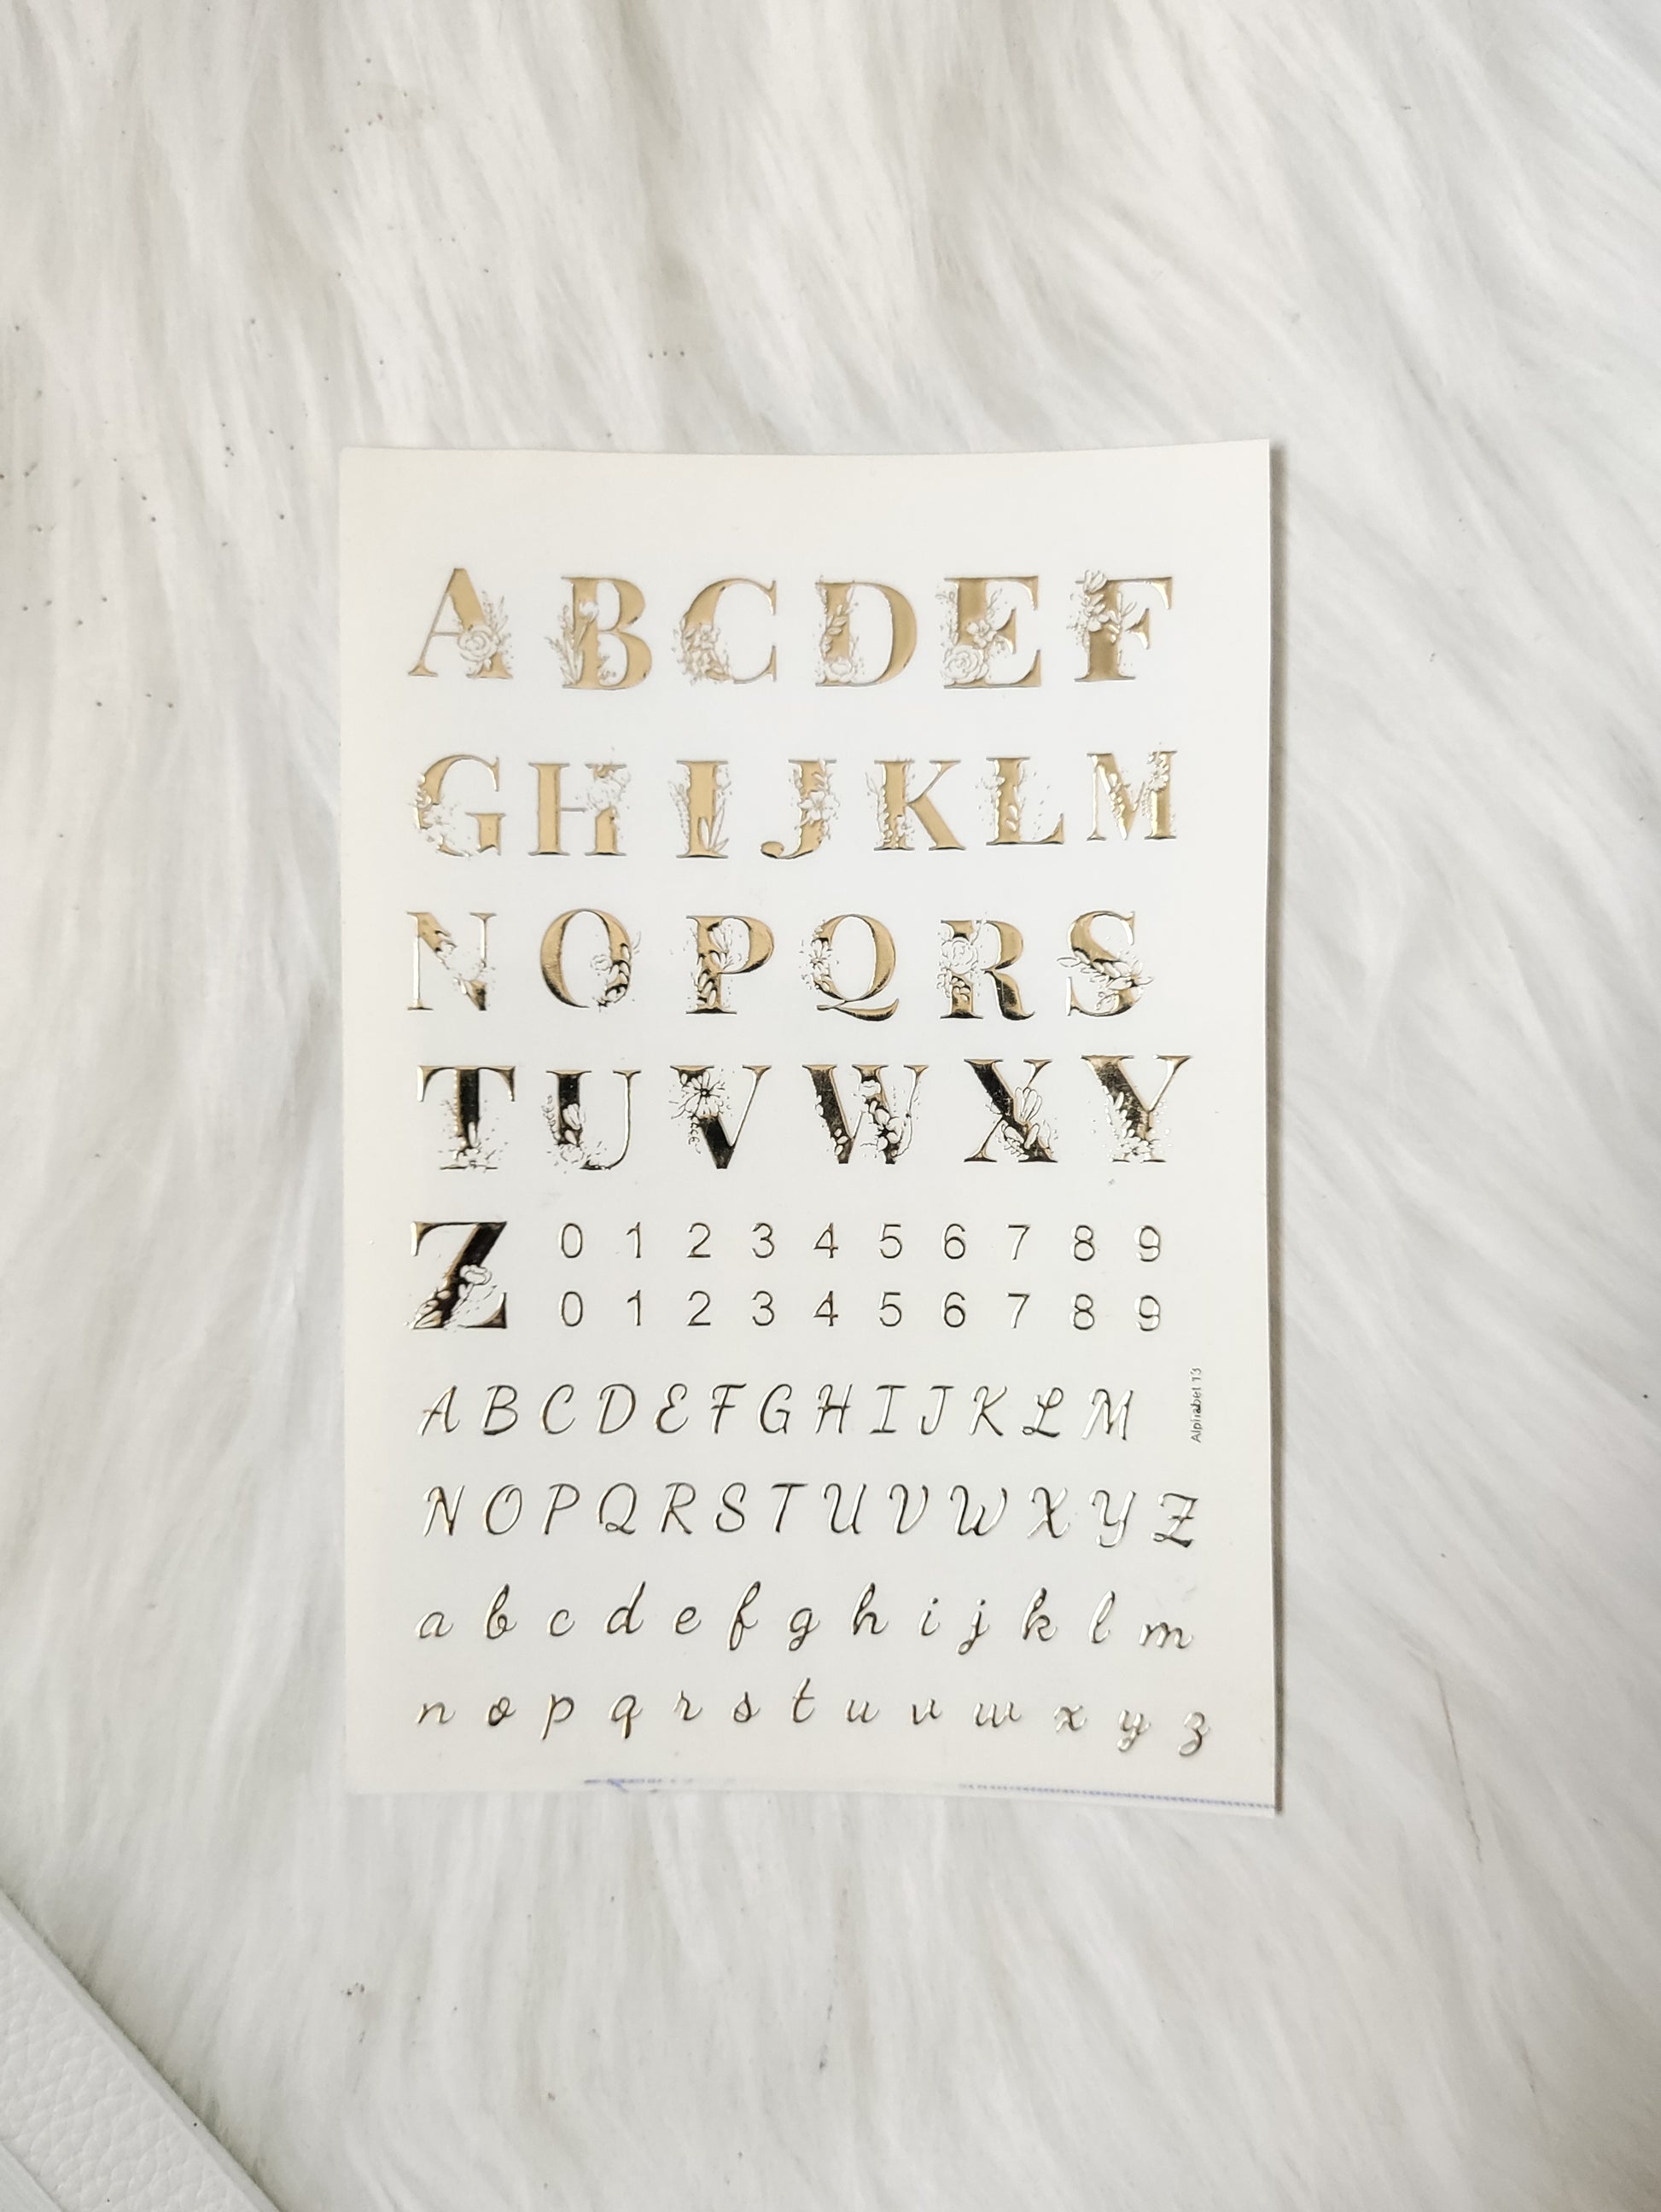 A B C D E F
G H I J K L M
N O P Q R S
T U V W X Y
Z 0 1 2 3 4 5 6 7 8 9
0 1 2 3 4 5 6 7 8 9
A B C D E F G H I J K L M
Alphabet 13
N O P Q R S T U V W X Y Z
a b c d e f g h i j k l m
n o p q r s t u v w x y z